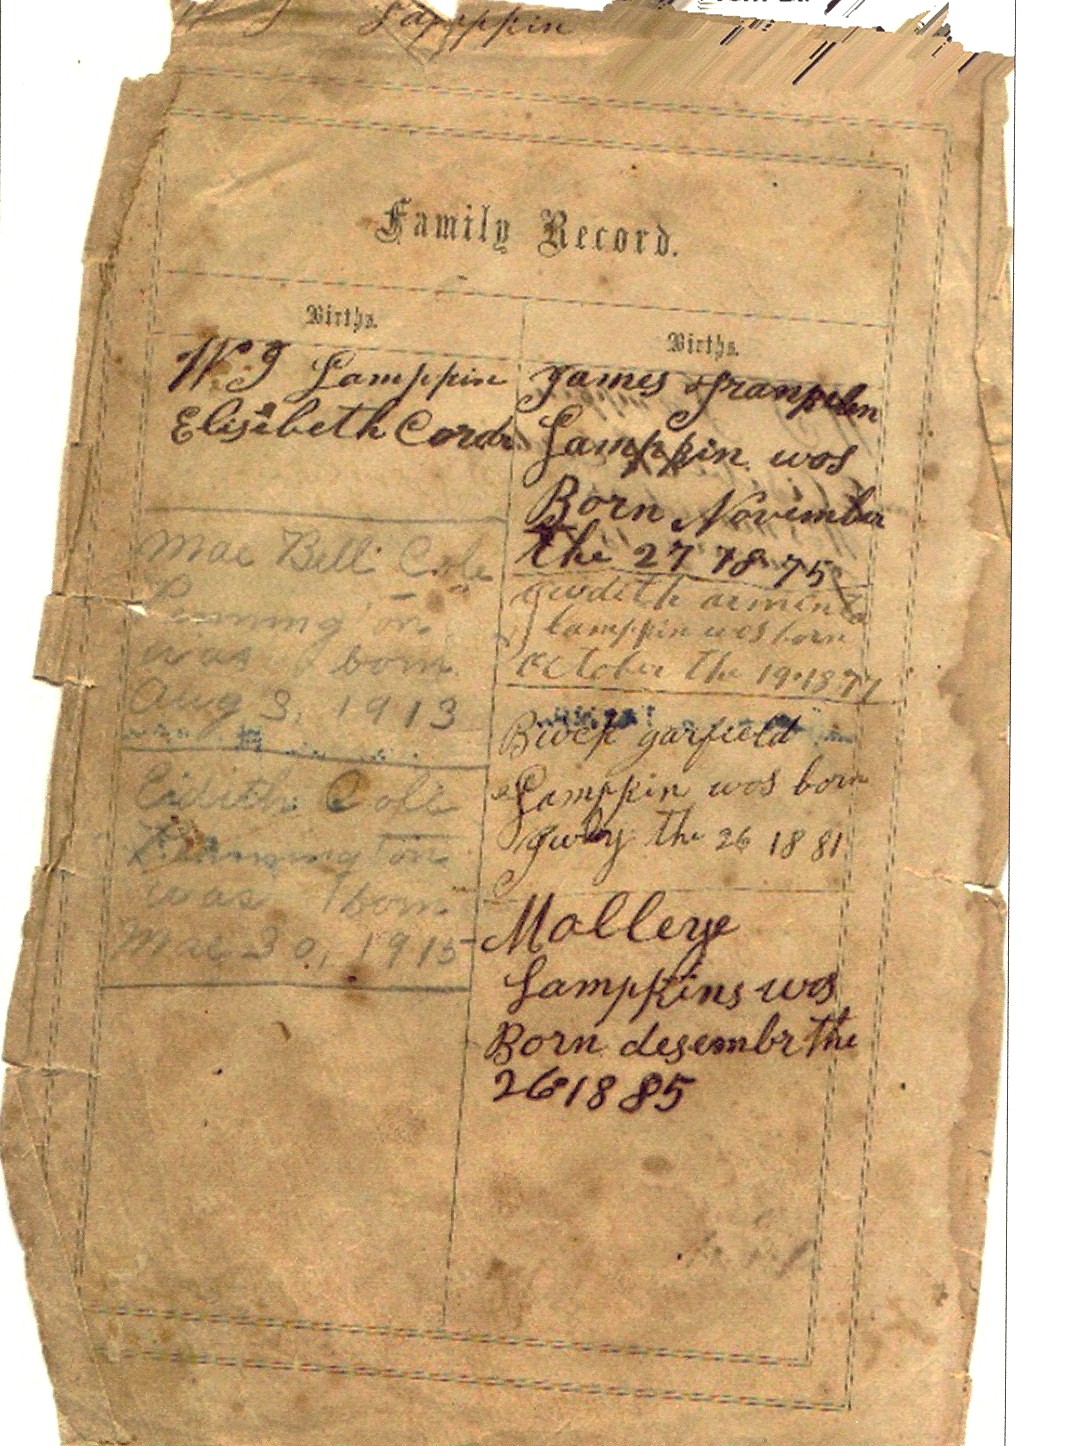 Lamppin
Family Record.
Births.
W J Lamppin
Elisibeth Cordr
Mae Bell Cole
was born
Aug 3, 1913
Eidith Cole
Pennington
was born
Mae 30, 1915
Births.
James Frankelen
Lampkin wos
Born November
the 27 1875
gudith arminta
lampkin wos born
October the 19 1877
garfield
Lampkin wos born
July the 26 1881
Mollerye
Lampkins wos
Born desembr the
26 1885